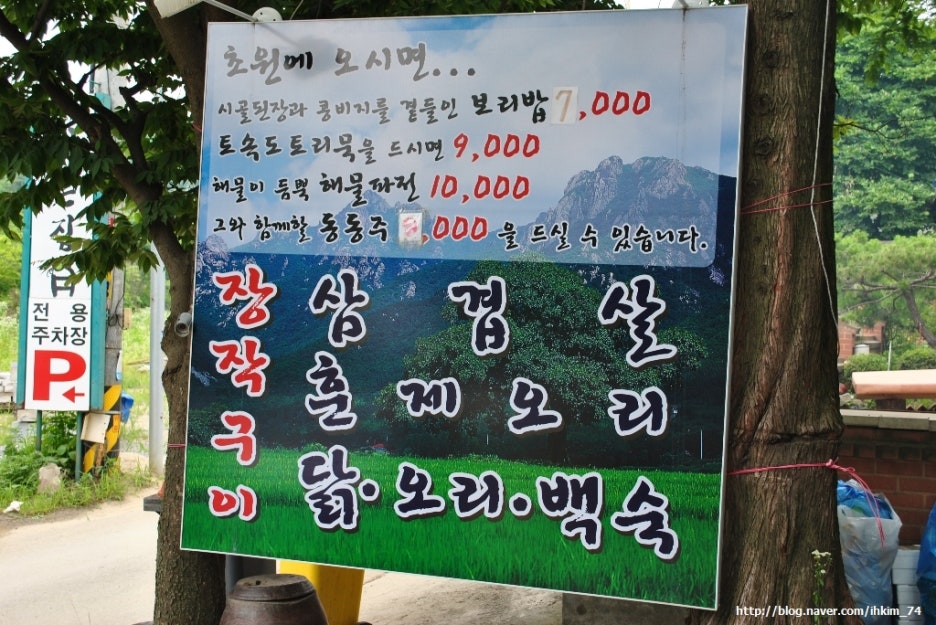 초원에 오시면...
시골된장과 콩비지를 곁들인 보리밥 7,000
토속도토리묵을 드시면 9,000
해물이 듬뿍 해물파전 10,000
그와 함께할 동동주 ,000 을 드실 수 있습니다.
장작구이
삼겹살
훈제오리
닭·오리·백숙
전용
주차장
P
http://blog.naver.com/ihkim_74